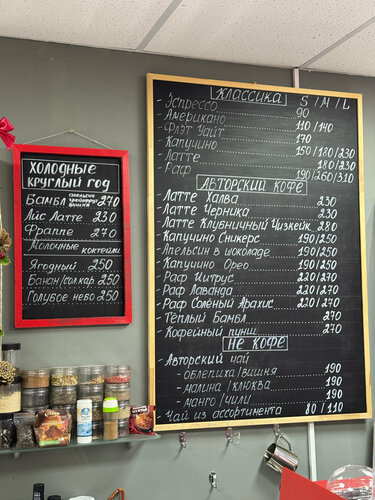 ХОЛОДНЫЕ
КРУГЛЫЙ ГОД
Бамбл апельсин грейпфрут вишня 270
Айс Латте 230
Фраппе 270
Молочные коктейли
Ягодный 250
Банан/солкар 250
Голубое небо 250
КЛАССИКА S / M / L
- Эспрессо 90
- Американо 110 / 140
- Флэт Уайт 170
- Капучино 150 / 180 / 230
- Латте 180 / 230
- Раф 190 / 260 / 310
АВТОРСКИЙ КОФЕ
- Латте Халва 230
- Латте Черника 230
- Латте Клубничный Чизкейк 280
- Капучино Сникерс 190/250
- Апельсин в шоколаде 190/250
- Капучино Орео 190/250
- Раф Цитрус 220/270
- Раф Лаванда 220/270
- Раф Солёный Арахис 220/270
- Тёплый Бамбл 270
- Кофейный пунш 270
НЕ КОФЕ
- Авторский чай
- облепиха/вишня 190
- малина / клюква 190
- манго / чили 190
- Чай из ассортимента 80 / 110